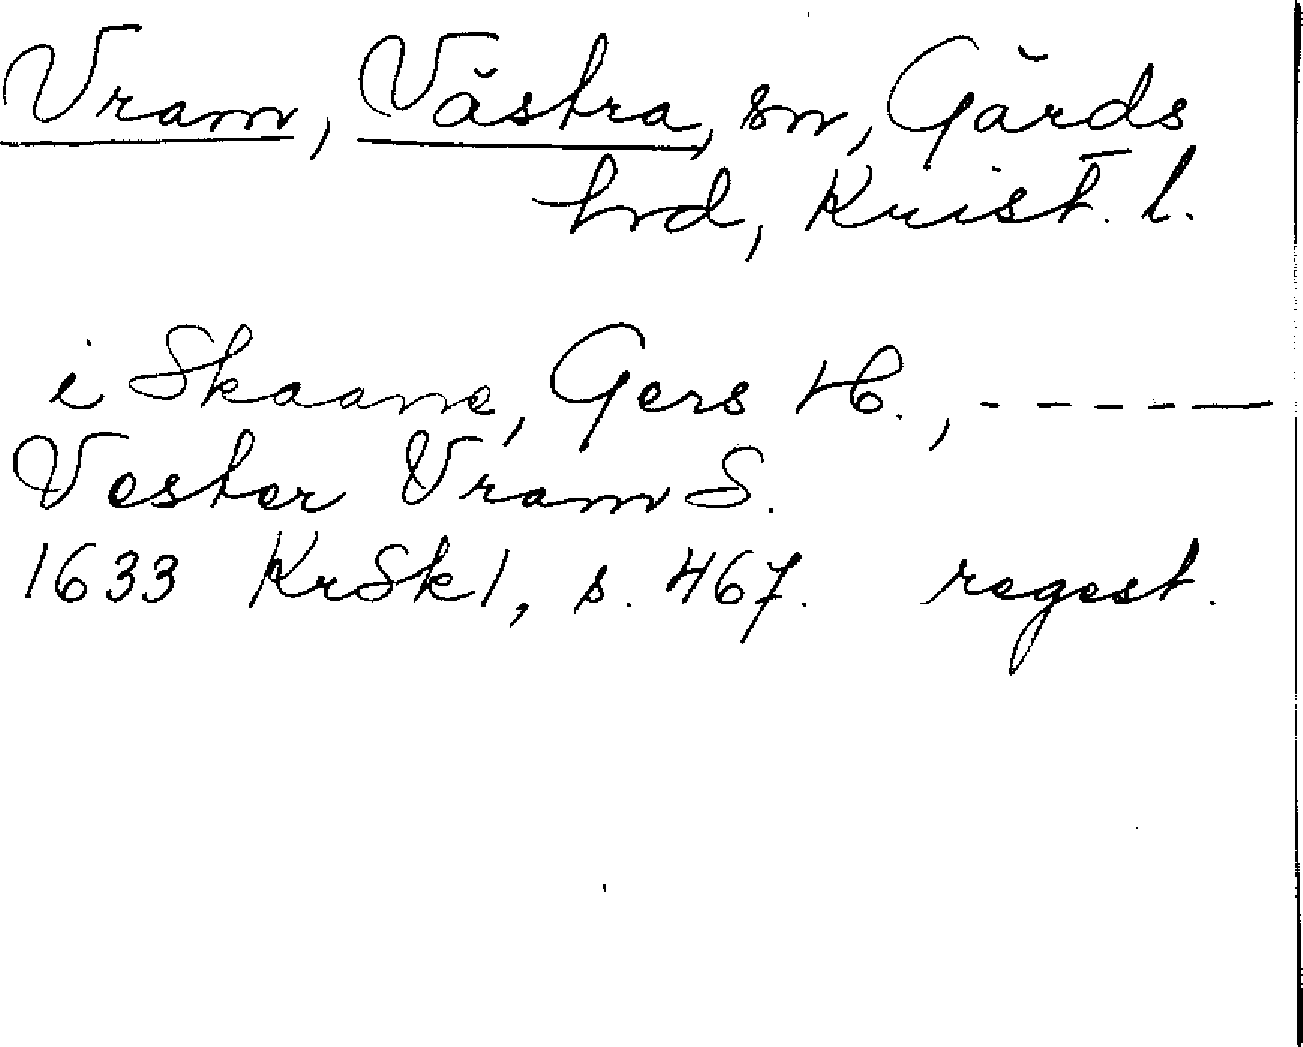 Vram, Västra, sn, Gärds
hrd, Krist. l.
i Skaane, Gers H., - - - - -
Vester Vram S.
1633 KrSk1, s. 467. regest.